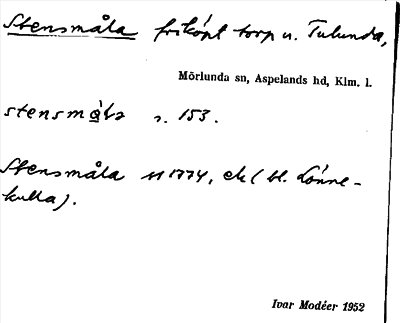 Stensmåla friköpt torp u. Tulunda,
Mörlunda sn, Aspelands hd, Klm. l.
stensmåla s. 153.
Stensmåla 1774, ek ( bl. Lönne-
kulla).
Ivar Modéer 1952